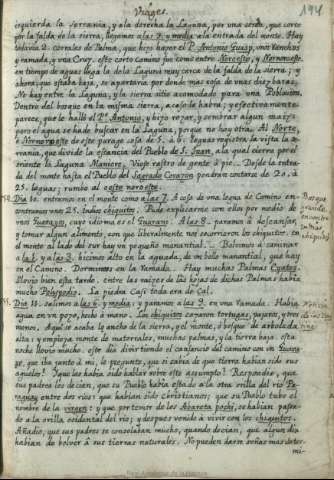 Viages.
194
izquierda la serranía, y a la derecha la Laguna, por una senda, que corte
por la falda de la sierra, llegamos alas 9. y media a la entrada del monte. Hay
todavía 2. corrales de Palma, que hizo hacer el P. Antonio Guasp, unos ranchos
y ramada, y una Cruz. este corto camino fue como entre Noroeste, y Nornoroeste.
en tiempo de aguas llega la dela Laguna muy cerca de la falda de la sierra; y
ahora, que estaba baja, se apartaría por donde mas cosa de unas diez baras.
No hay entre la Laguna, y la sierra sitio acomodado para una Poblacion.
Dentro del bosque en la misma sierra, acaso la habrá; y efectivamente
parece, que le halló el P. Antonio, y hizo rozar, y sembrar algun maiz:
pero el agua se hade buscar en la Laguna, porque no hay otra. Al Norte,
y Nornoroeste de este parage cosa de 5. a 6. leguas registra la vista la ser-
ranía, que divide la estancia del Pueblo de S. Juan, ala qual cierra por el
oriente la Laguna Maniore. Viose rastro de gente à pie. Desde la entra-
da del monte hasta el Pueblo del Sagrado Corazon pondran contarse de 20. à
25. leguas; rumbo al oeste noroeste.
Dia 10. entramos en el monte como a las 7. A cosa de una legua de Camino en-
contramos unos 25. Indios chiquitos. Pude explicarme con ellos por medio de
mis Guanas, cuyo idioma es el Guarani. Alas 8. paramos à descansar,
y tomar algun alimento, con que liberalmente nos socorrieron los chiquitos. en
el monte al lado del sur hay un pequeño manantial. Bolvimos à caminar
a la 1. y alas 3. hicimos alto en la aguada, de un bello manantial, que hay
en el Camino. Dormimos en la Ramada. Hay muchas Palmas
llovio bien esta tarde. entre las raizes de las hojas de dichas Palmas habia
mucho Polypodio. La piedra casi toda era de Cal.
Dia 11. salimos alas 6. y media: y paramos alas 9. en una Ramada. Habia
agua en un pozo, hecho à mano. Los chiquitos cazaron tortugas, pajaros, y otros
monos. Aqui se acaba lo ancho de la sierra, y el monte, ò bosque de arboleda
alta; y empieza monte de matorrales, muchas palmas, y la tierra baja. esta
noche llovio mucho. este dia divirtiendo el cansancio del camino con un
que iba junto à mi, le pregunte, que si sabia de que tierra habian sido sus
aguelos? Y que les habia oido hablar sobre este assumpto? Respondio, que
sus padres les decian, que su Pueblo habia estado ala otra orilla del rio Pa-
raguay entre dos rios: que habian sido christianos; que su Pueblo tubo el
nombre de la virgen: y que por temor de los pochi, se habian passa-
do a la orilla occidental del rio; y despues venido à vivir con los chiquitos.
Añadio, que sus padres se consolaban mucho, quando decian, que algun dia
habian de bolver à sus tierras naturales. No pueden darse señas mas deter-
mi-